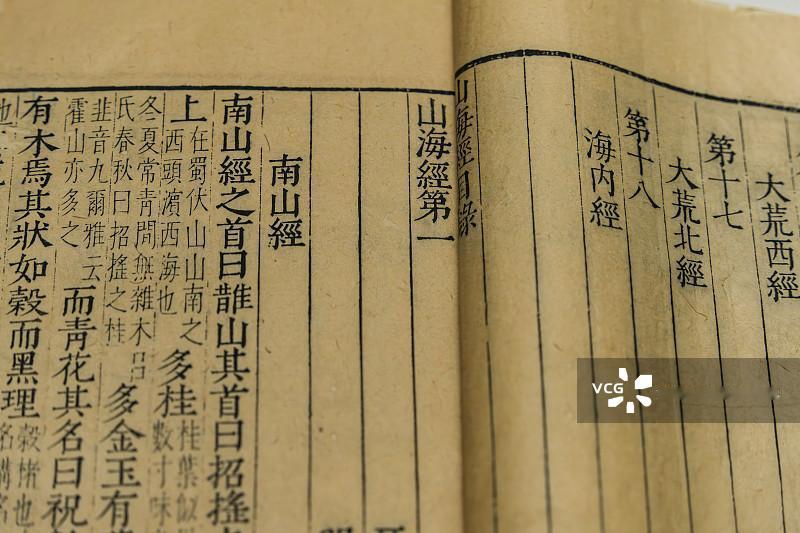 大荒西經
第十七
大荒北經
第十八
海内經
山海經目錄
山海經第一
南山經
南山經之首曰䧿山其首曰招搖
上在蜀伏山山南之西頭濱西海也多桂桂葉似數寸味
冬夏常青間無雜木呂氏春秋曰招搖之桂多金玉有
韭音九爾雅云霍山亦多之而青花其名曰祝
有木焉其狀如穀而黑理穀楮也
VCG